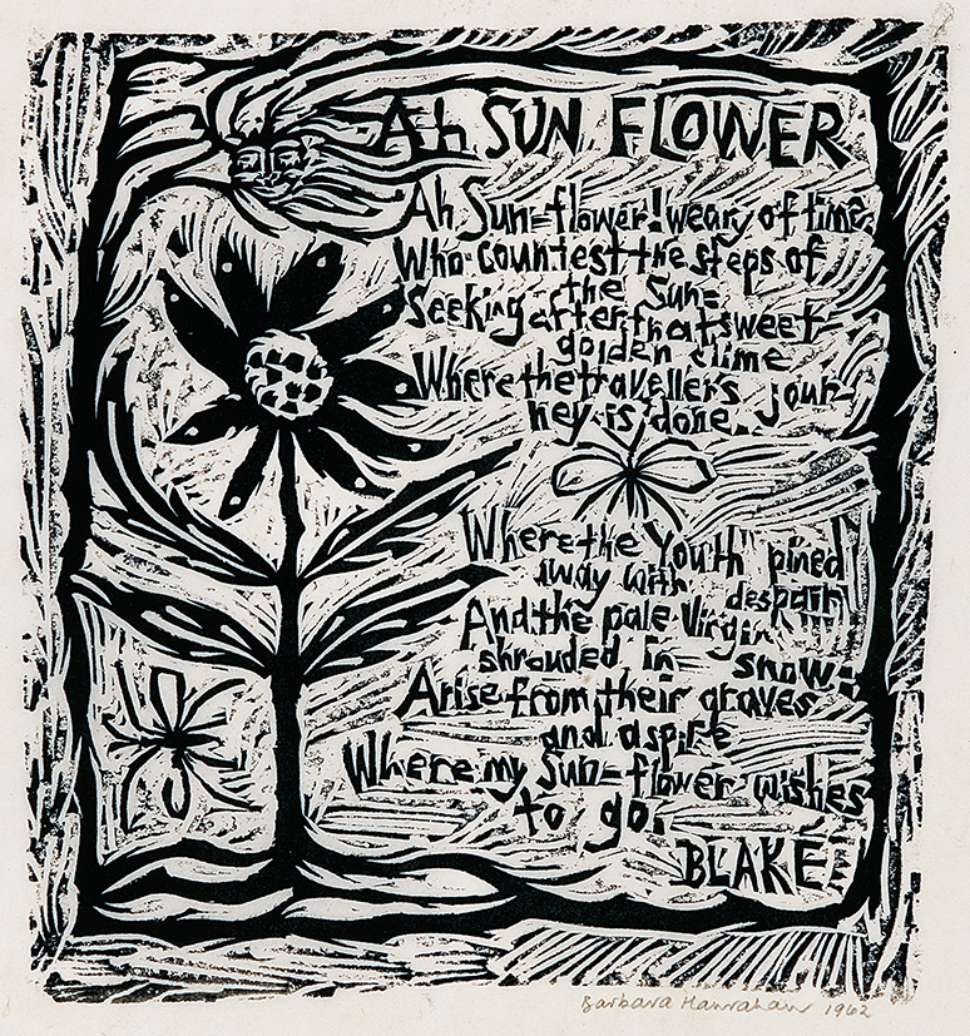 Ah SUN FLOWER
Ah Sun=flower! weary of time
Who countest the steps of
the Sun=
Seeking after that sweet
golden clime
Where the traveller's jour-
ney is done.
Where the Youth pined
away with despair
And the pale Virgin
shrouded in snow:
Arise from their graves
and aspire
Where my Sun=flower wishes
to go.
BLAKE
Barbara Hanrahan 1962